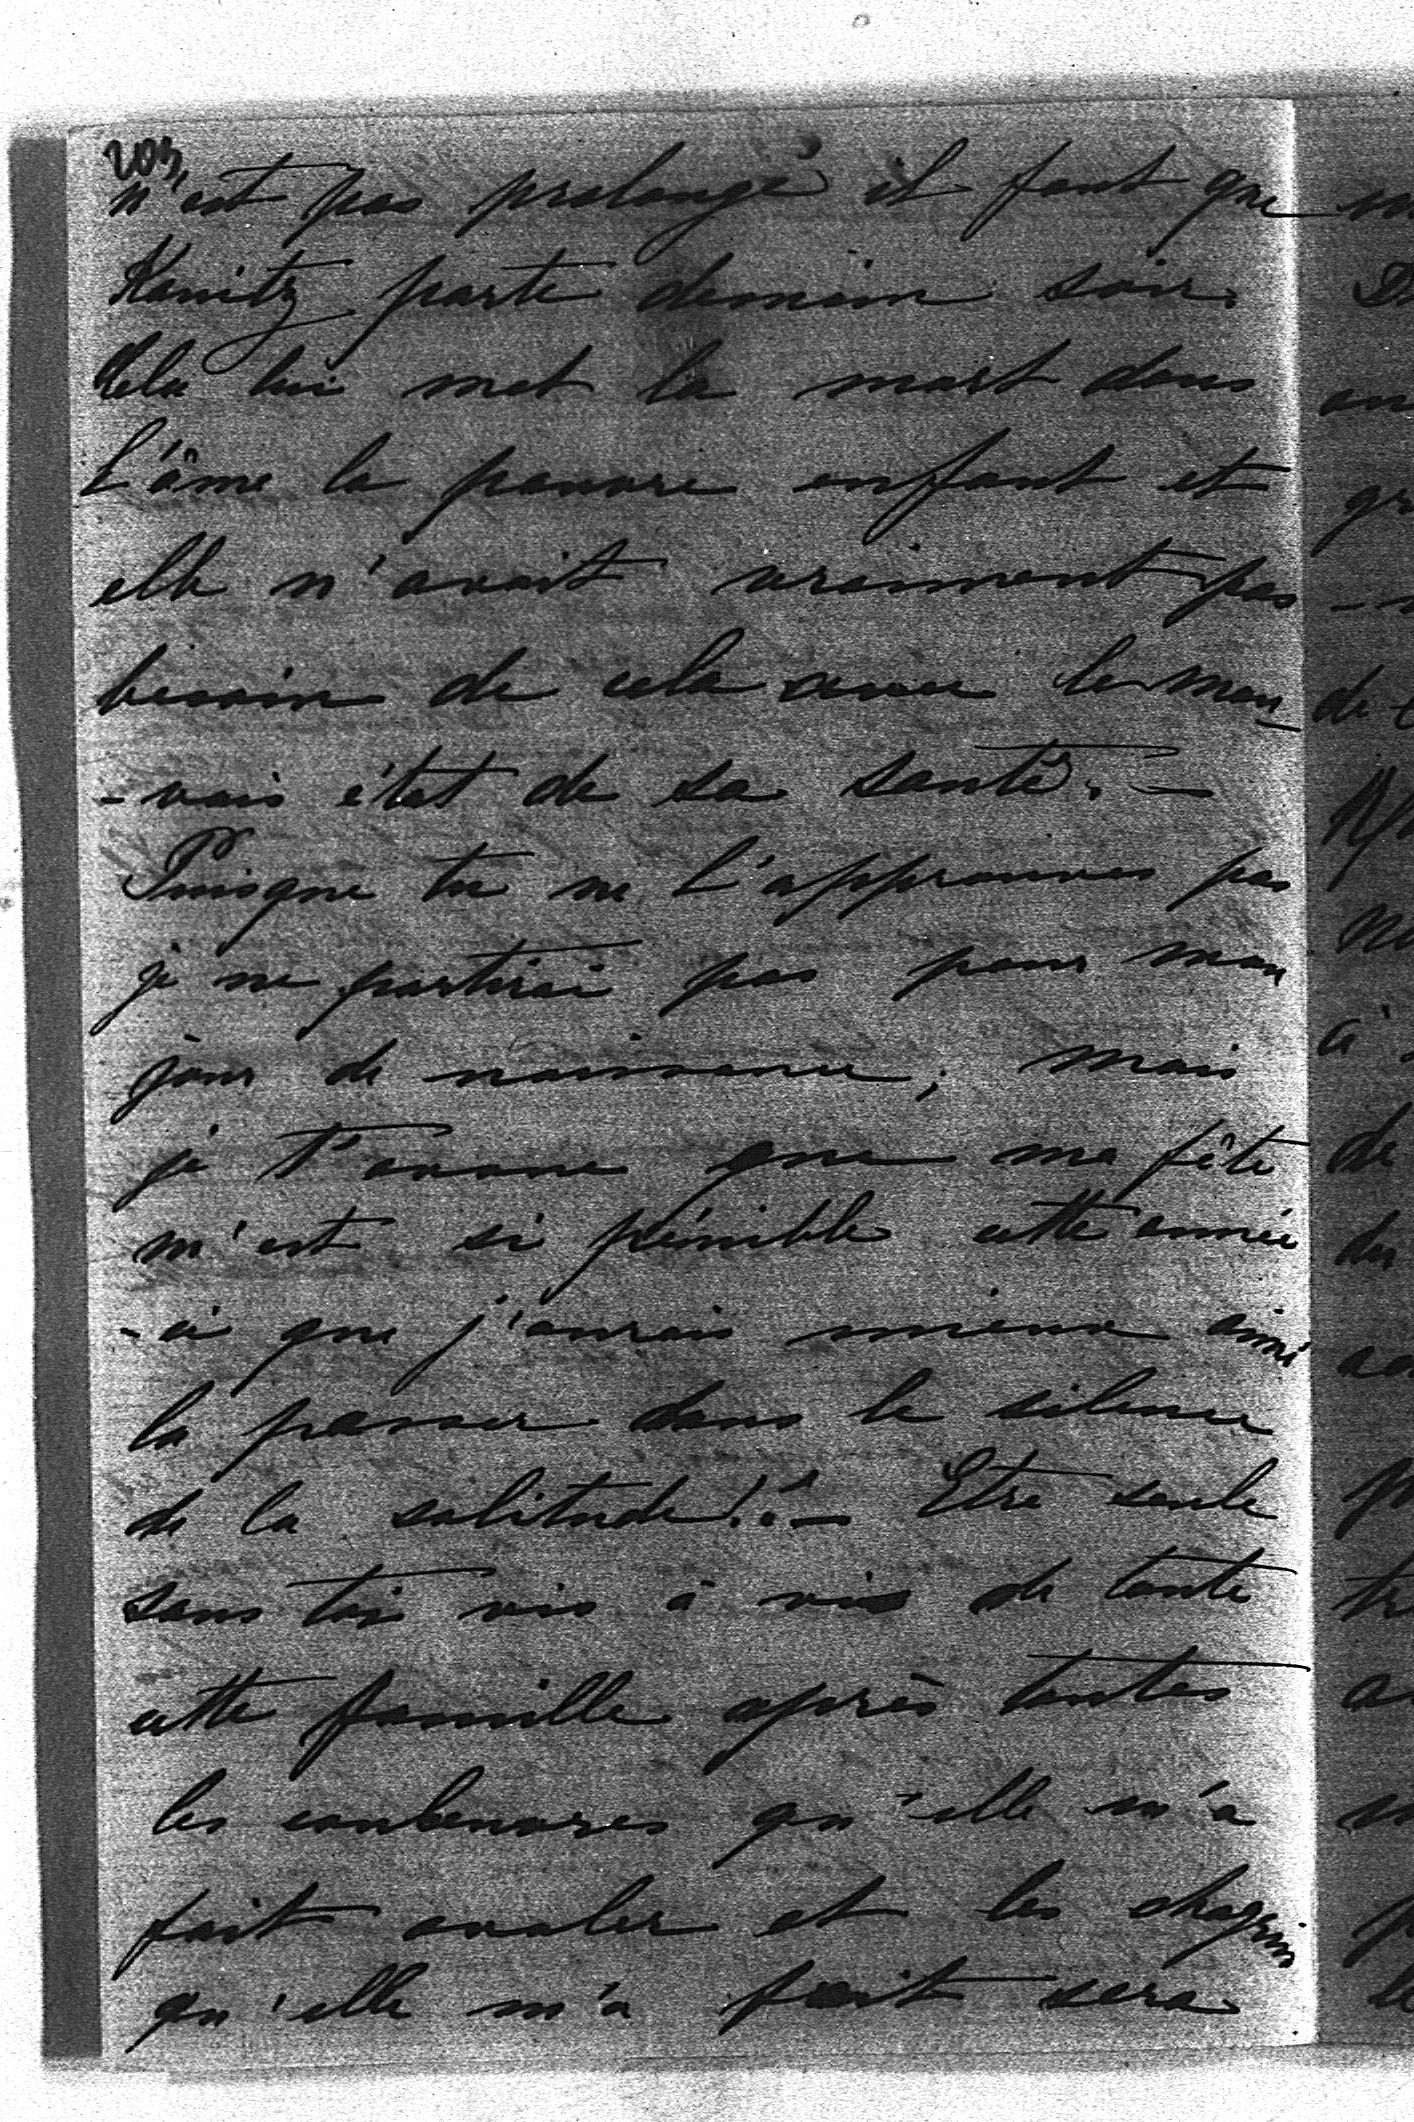 203
n'est pas prolongé il faut que
Kanitz parte demain soir.
Cela lui met la mort dans
l'âme la pauvre enfant et
elle n'avait vraiment pas
besoin de cela avec le mau-
-vais état de sa santé. —
Puisque tu ne l'approuves pas
je ne partirai pas pour mon
jour de naissance; mais
je t'avoue que ma fête
m'est si pénible cette année
-ci que j'aurais mieux aimé
la passer dans le silence
de la solitude!. — Etre seule
sans toi vis à vis de toute
cette famille après toutes
les couleuvres qu'elle m'a
fait avaler et les chagrins
qu'elle m'a fait sera